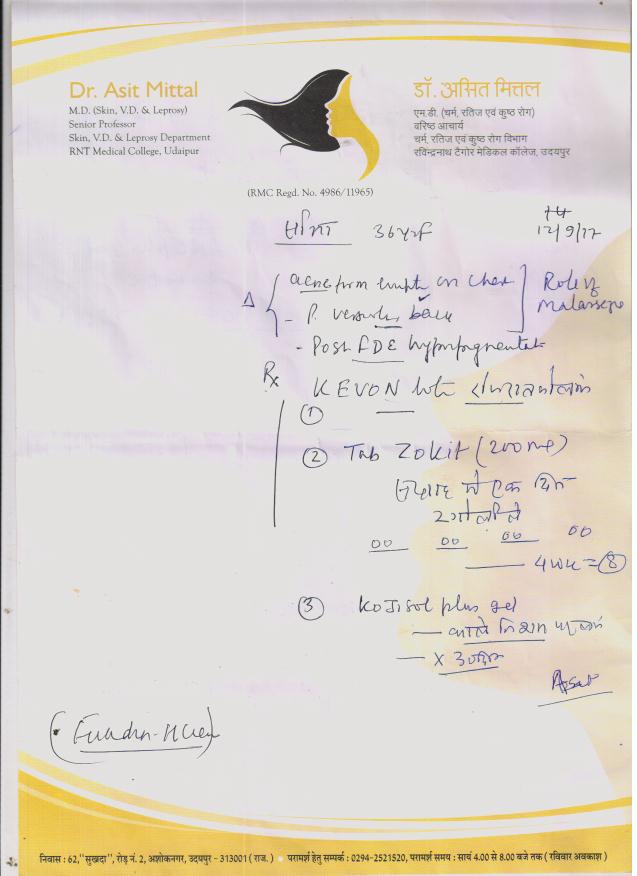 Dr. Asit Mittal
M.D. (Skin, V.D. & Leprosy)
Senior Professor
Skin, V.D. & Leprosy Department
RNT Medical College, Udaipur
डॉ. असित मित्तल
एम.डी. (चर्म, रतिज एवं कुष्ठ रोग)
वरिष्ठ आचार्य
चर्म, रतिज एवं कुष्ठ रोग विभाग
रविन्द्रनाथ टैगोर मेडिकल कॉलेज, उदयपुर
(RMC Regd. No. 4986/11965)
36yrF
12/9/17
Δ
acneform erupt on chest
Role of
- P. versicolor back
- Post FDE hyperpigmentat
Rx
KEVON
①
② Tab ZOKIT (200mg)
में एक दिन
00 00 00 00
4 wk = ⑧
③ Kojisol plus gel
— काले निशान
— x 30 दिन
निवास : 62, "सुखदा", रोड़ नं. 2, अशोकनगर, उदयपुर - 313001 ( राज. ) परामर्श हेतु सम्पर्क : 0294-2521520, परामर्श समय : सायं 4.00 से 8.00 बजे तक ( रविवार अवकाश )